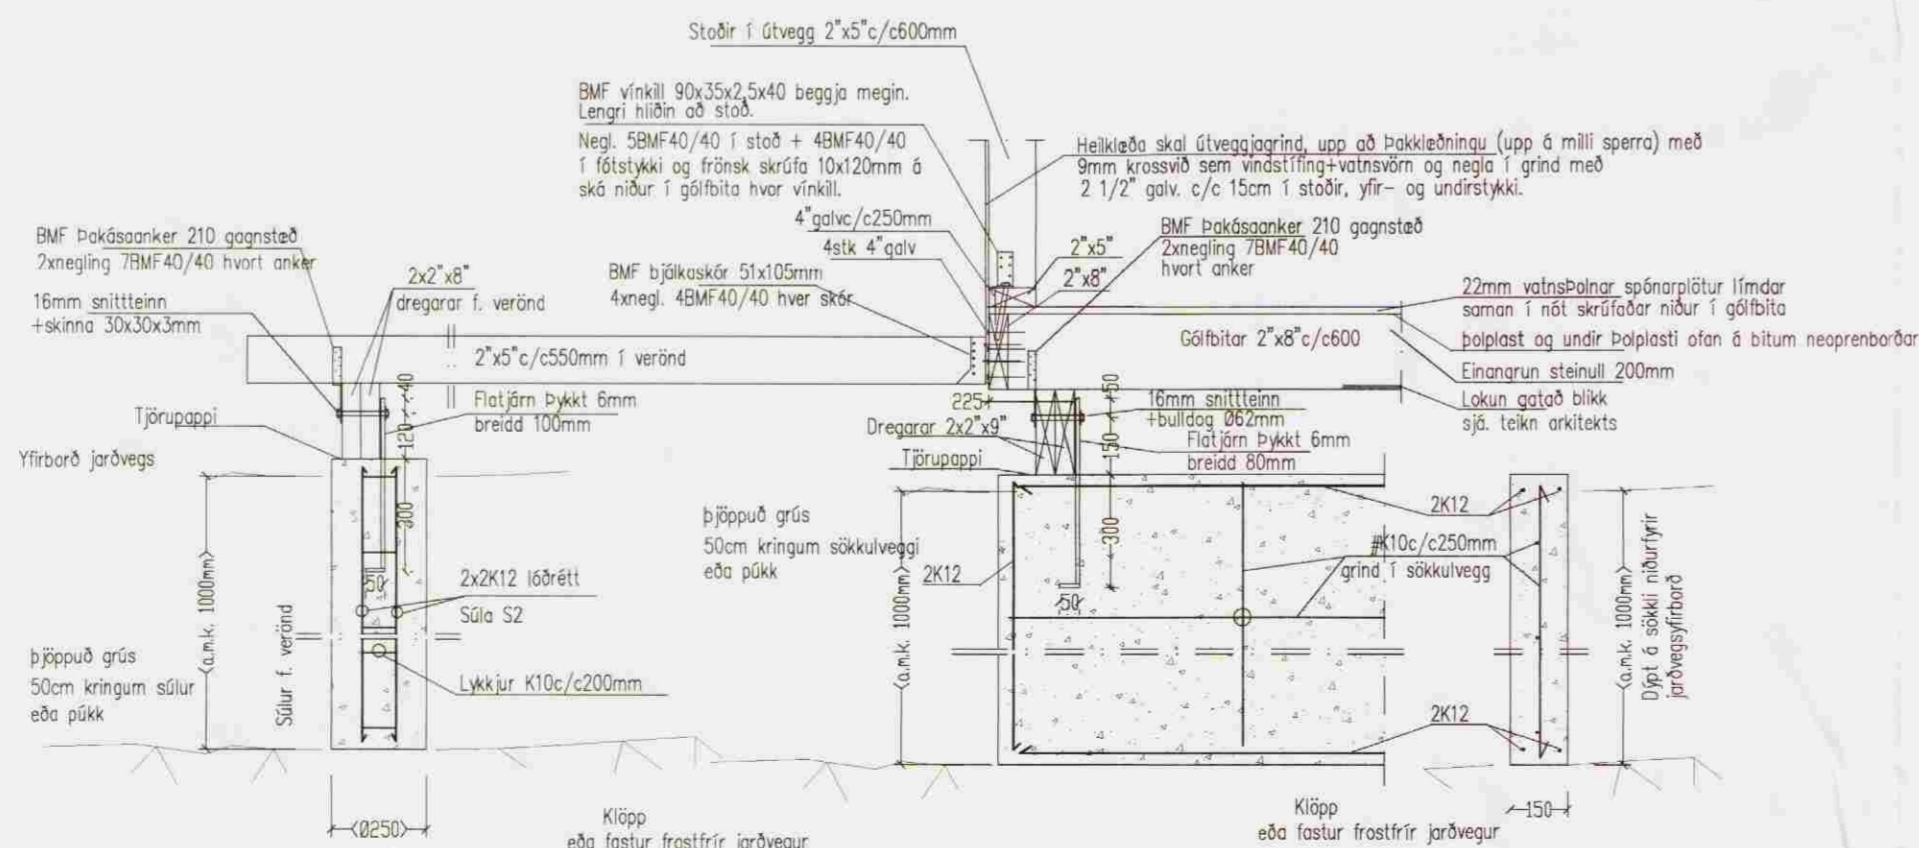 Stoðir í útvegg 2"x5"c/c600mm
BMF vínkill 90x35x2,5x40 beggja megin.
Lengri hliðin að stoð.
Negl. 5BMF40/40 í stoð + 4BMF40/40
í fótstykki og frönsk skrúfa 10x120mm á
ská niður í gólfbita hvor vínkill.
Heilklæða skal útveggjagrind, upp að Þakklæðningu (upp á milli sperra) með
9mm krossvið sem vindstífing+vatnsvörn og negla í grind með
2 1/2" galv. c/c 15cm í stoðir, yfir- og undirstykki.
4"galvc/c250mm
4stk 4"galv
BMF Þakásaanker 210 gagnstæð
2xnegling 7BMF40/40 hvort anker
2x2"x8"
dregarar f. verönd
BMF bjálkaskór 51x105mm
4xnegl. 4BMF40/40 hver skór
2"x5"
2"x8"
BMF Þakásaanker 210 gagnstæð
2xnegling 7BMF40/40
hvort anker
16mm snittteinn
+skinna 30x30x3mm
22mm vatnsÞolnar spónarplötur límdar
saman í nót skrúfaðar niður í gólfbita
2"x5"c/c550mm í verönd
Gólfbitar 2"x8"c/c600
þolplast og undir Þolplasti ofan á bitum neoprenborðar
Einangrun steinull 200mm
Lokun gatað blikk
sjá. teikn arkitekts
40
120
Flatjárn Þykkt 6mm
breidd 100mm
225
50
150
16mm snittteinn
+bulldog Ø62mm
Dregarar 2x2"x9"
Flatjárn Þykkt 6mm
breidd 80mm
Tjörupappi
Tjörupappi
Yfirborð jarðvegs
<a.m.k. 1000mm>
300
50
Súlur f. verönd
2x2K12 lóðrétt
Súla S2
Lykkjur K10c/c200mm
þjöppuð grús
50cm kringum súlur
eða púkk
þjöppuð grús
50cm kringum sökkulveggi
eða púkk
2K12
<a.m.k. 1000mm>
300
50
2K12
#K10c/c250mm
grind í sökkulvegg
2K12
<a.m.k. 1000mm>
Dýpt á sökkli niðurfyrir
jarðvegsyfirborð
<Ø250>
Klöpp
eða fastur frostfrír jarðvegur
Klöpp
eða fastur frostfrír jarðvegur
150